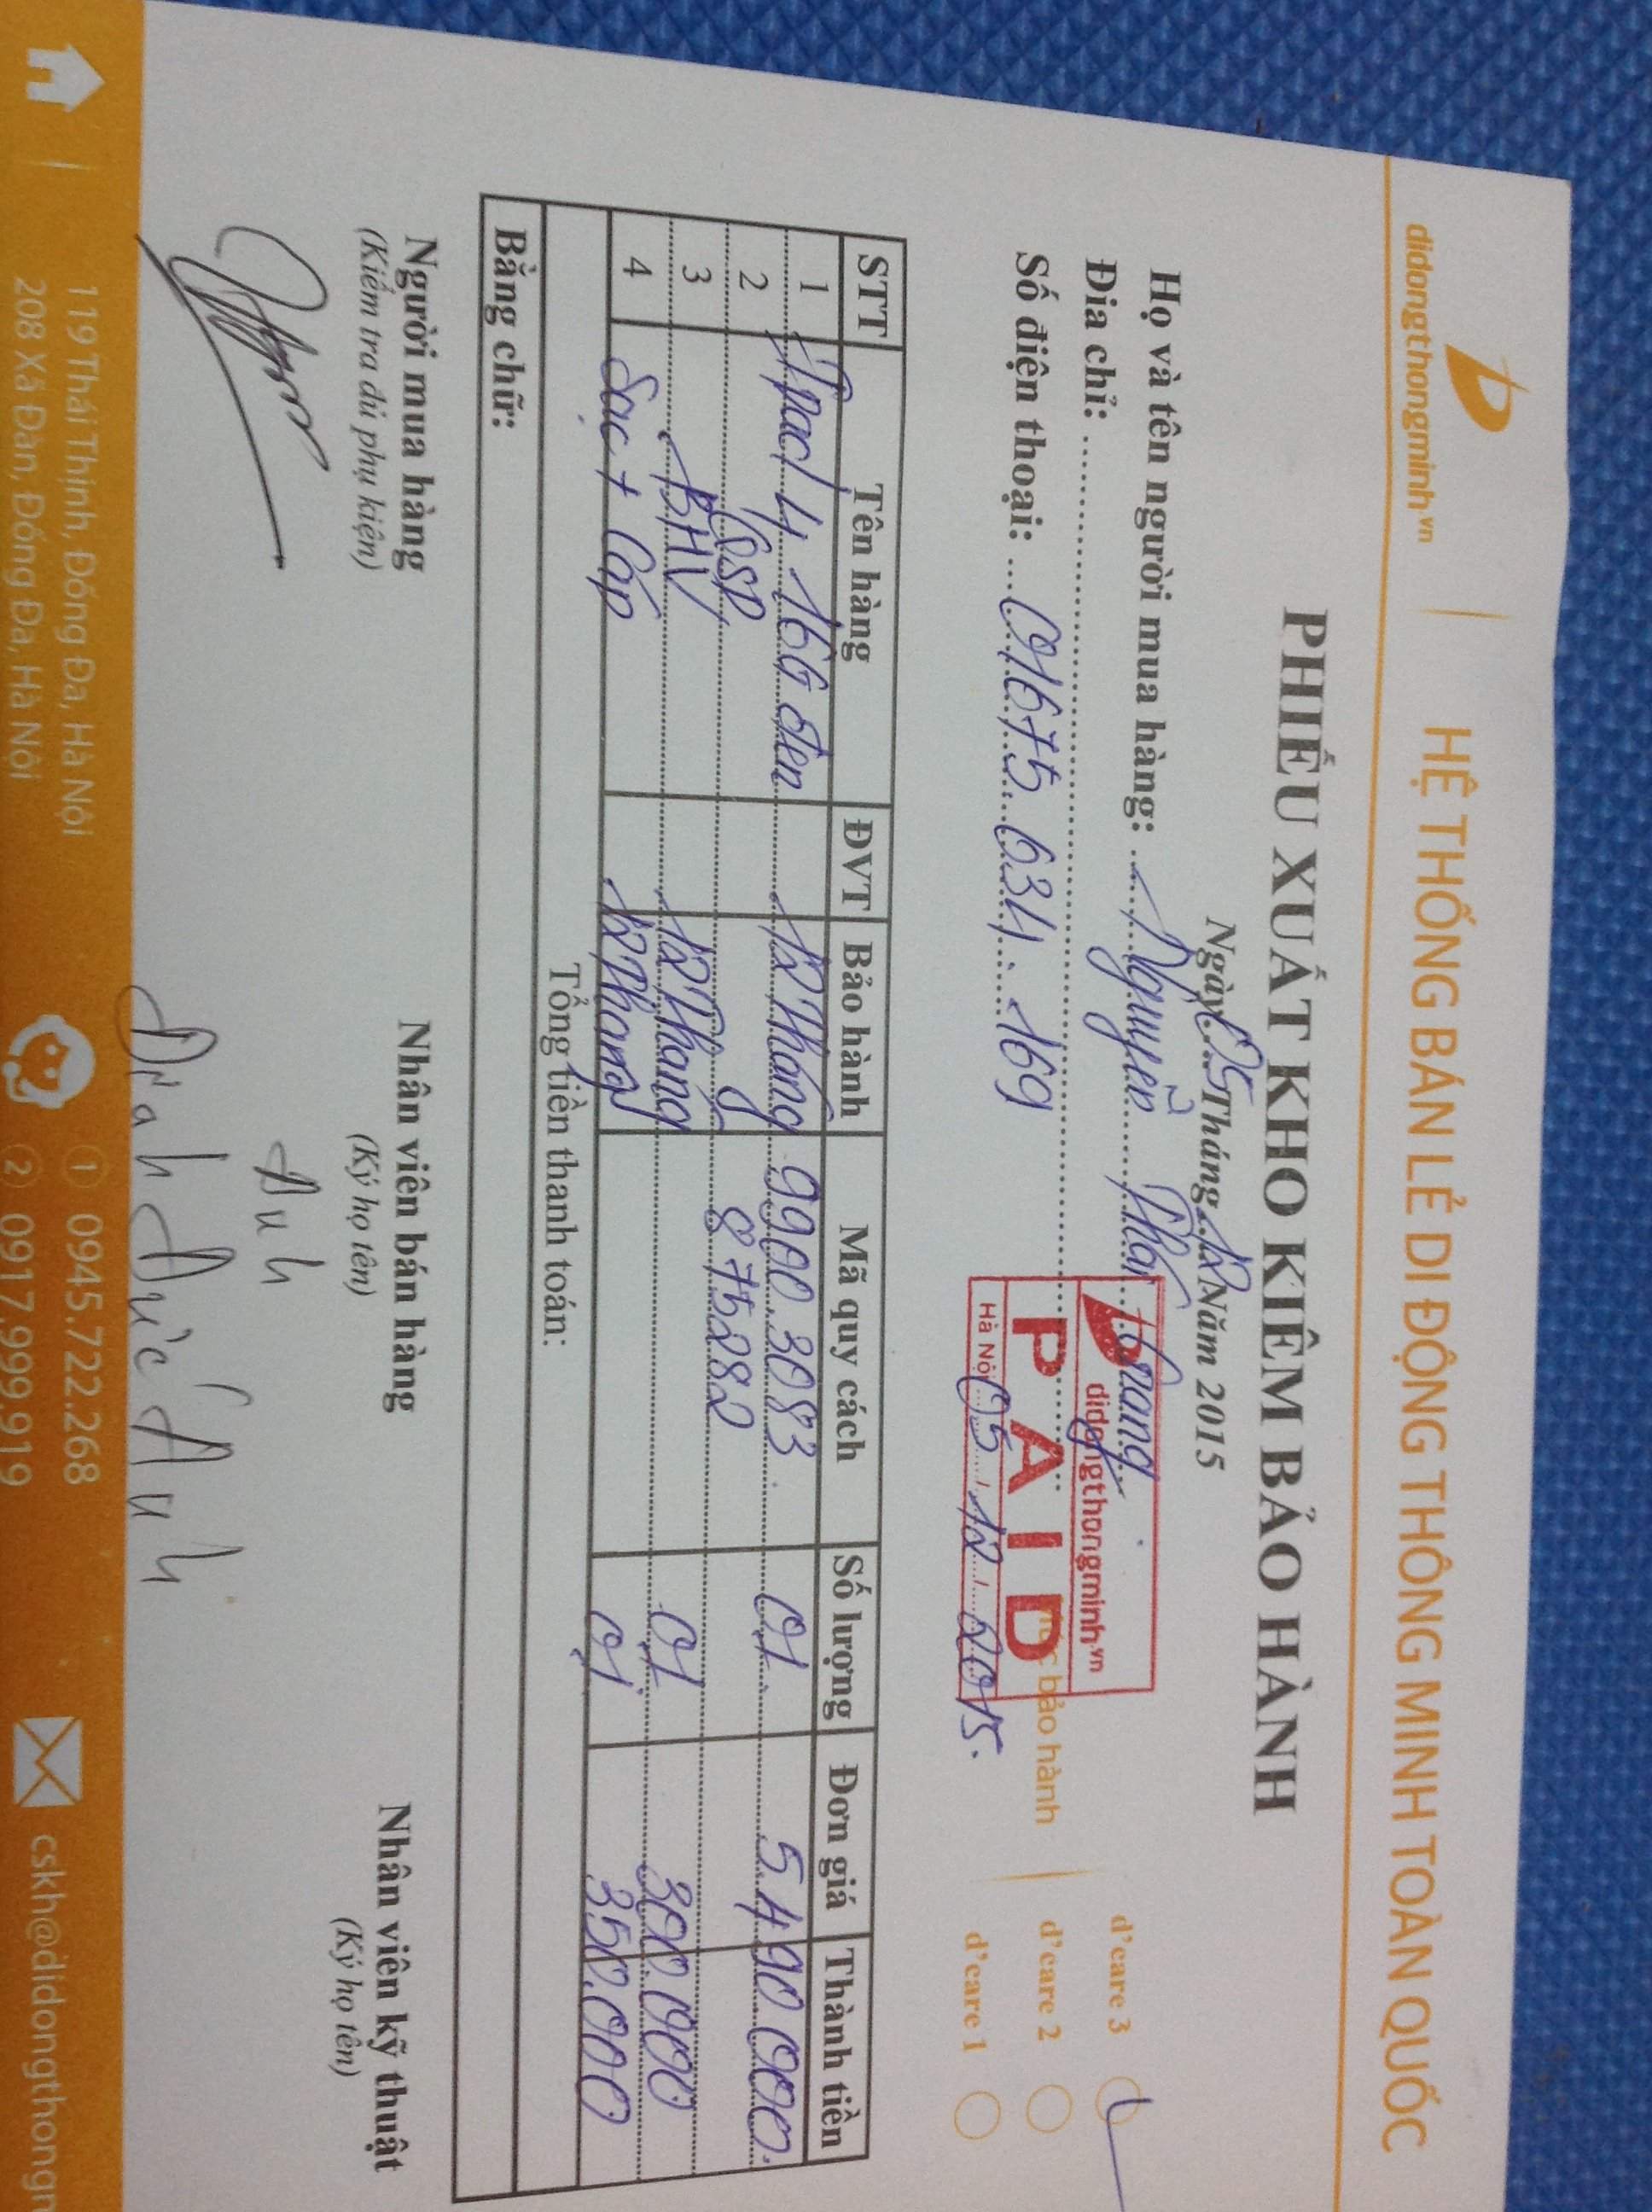 didongthongminh.vn HỆ THỐNG BÁN LẺ DI ĐỘNG THÔNG MINH TOÀN QUỐC
PHIẾU XUẤT KHO KIÊM BẢO HÀNH
Ngày 05 Tháng 12 Năm 2015
Họ và tên người mua hàng: Nguyễn Trang
Đia chỉ:
Số điện thoại: 01675 634 169
didongthongminh.vn
PAID
Hà Nội 05 / 12 / 2015.
bảo hành
d'care 3
d'care 2
d'care 1
STT Tên hàng ĐVT Bảo hành Mã quy cách Số lượng Đơn giá Thành tiền
1 Ipad 4 16G đen 12 tháng 9900.3083 01 5.490.000
2 875282
3 BHV 12 tháng 01 300.000
4 Sạc + Cáp 12 tháng 01 350.000
Tổng tiền thanh toán:
Bằng chữ:
Người mua hàng Nhân viên bán hàng Nhân viên kỹ thuật
(Kiểm tra đủ phụ kiện) (Ký họ tên) (Ký họ tên)
Anh
Đức Anh
119 Thái Thịnh, Đống Đa, Hà Nội 1 0945.722.268 cskh@didongthongm
208 Xã Đàn, Đống Đa, Hà Nội 2 0917.999.919